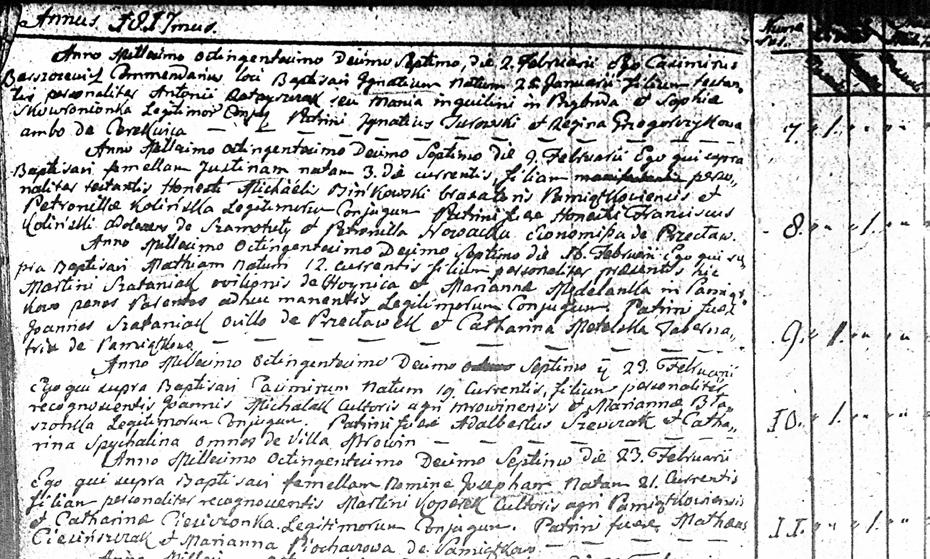 Annus 1817mus.
Nume
rus.
Anno Millesimo Octingentesimo Decimo Septimo, die 2. Februarii Ego Casimirus
Commendarius loci Baptisavi Ignatium Natum 28 Januarii filium testan
tis personaliter Antonii seu Mania inquilini in et Sophiæ
Skowronionka Legitimor Conjug Patrini Ignatius Turowski et Regina Grzegorzykowa
ambo de Cerekwica — — — — — — — 7.
Anno Millesimo Octingentesimo Decimo Septimo die 9. Februarii Ego qui supra
Baptisavi femellam Justinam natam 3. die currentis, filiam perso,
naliter testantis Honesti Michaelis Binkowski braxatoris Pamiątkoviensis et
Petronillæ Kolinska Legitimorum Conjugum Patrini fuere Honestus Franciscus
Kolinski de Szamotuly et Petronilla Nowacka Economissa de Przecław. 8.
Anno Millesimo Octingentesimo Decimo Septimo die 16. Februarii Ego qui su
pra Baptisavi Mathiam Natum 12. currentis filium personaliter præsentis hic
Martini Szataniak ovilionis de et Mariannæ in Pamiąt
kowo penes Parentes adhuc manentis Legitimorum Conjugum. Patrini fuere
Joannes Szataniak Ovillo de Przecławek et Catharina Taberna,
trix de Pamiątkowo — — — — — — — 9.
Anno Millesimo Octingentesimo Decimo Septimo 23. Februarii
Ego qui supra Baptisavi Casimirum Natum 19. Currentis, filium personaliter
recognoscentis Joannis Michalak Cultoris agri Mrowinensis et Mariannæ Bła,
szonka Legitimorum Conjugum. Patrini fuere Adalbertus Szewczak et Catha,
rina Spychalina omnes de Villa Mrowin — — — — 10.
Anno Millesimo Octingentesimo Decimo Septimo die 23. Februarii
Ego qui supra Baptisavi femellam Nomine Josepham Natam 21. Currentis
filiam personaliter recognoscentis Martini Koperek Cultoris agri Pamiątkoviensis
et Catharinæ Legitimorum Conjugum. Patrini fuere Mathæus
Ciecińszczak et Marianna Piochaczowa de Pamiątkowo — — — 11.